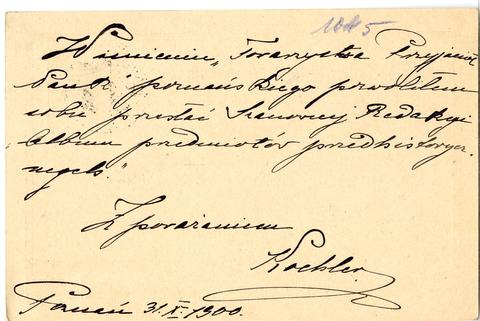 1085
W imieniu „Towarzystwa Przyjaciół
Nauk" poznańskiego pozwoliłem
sobie przesłać Szanownej Redakcyi
„Album przedmiotów przedhistorycz-
nych."
Z poważaniem
Koehler.
Poznań 31.X.1900.